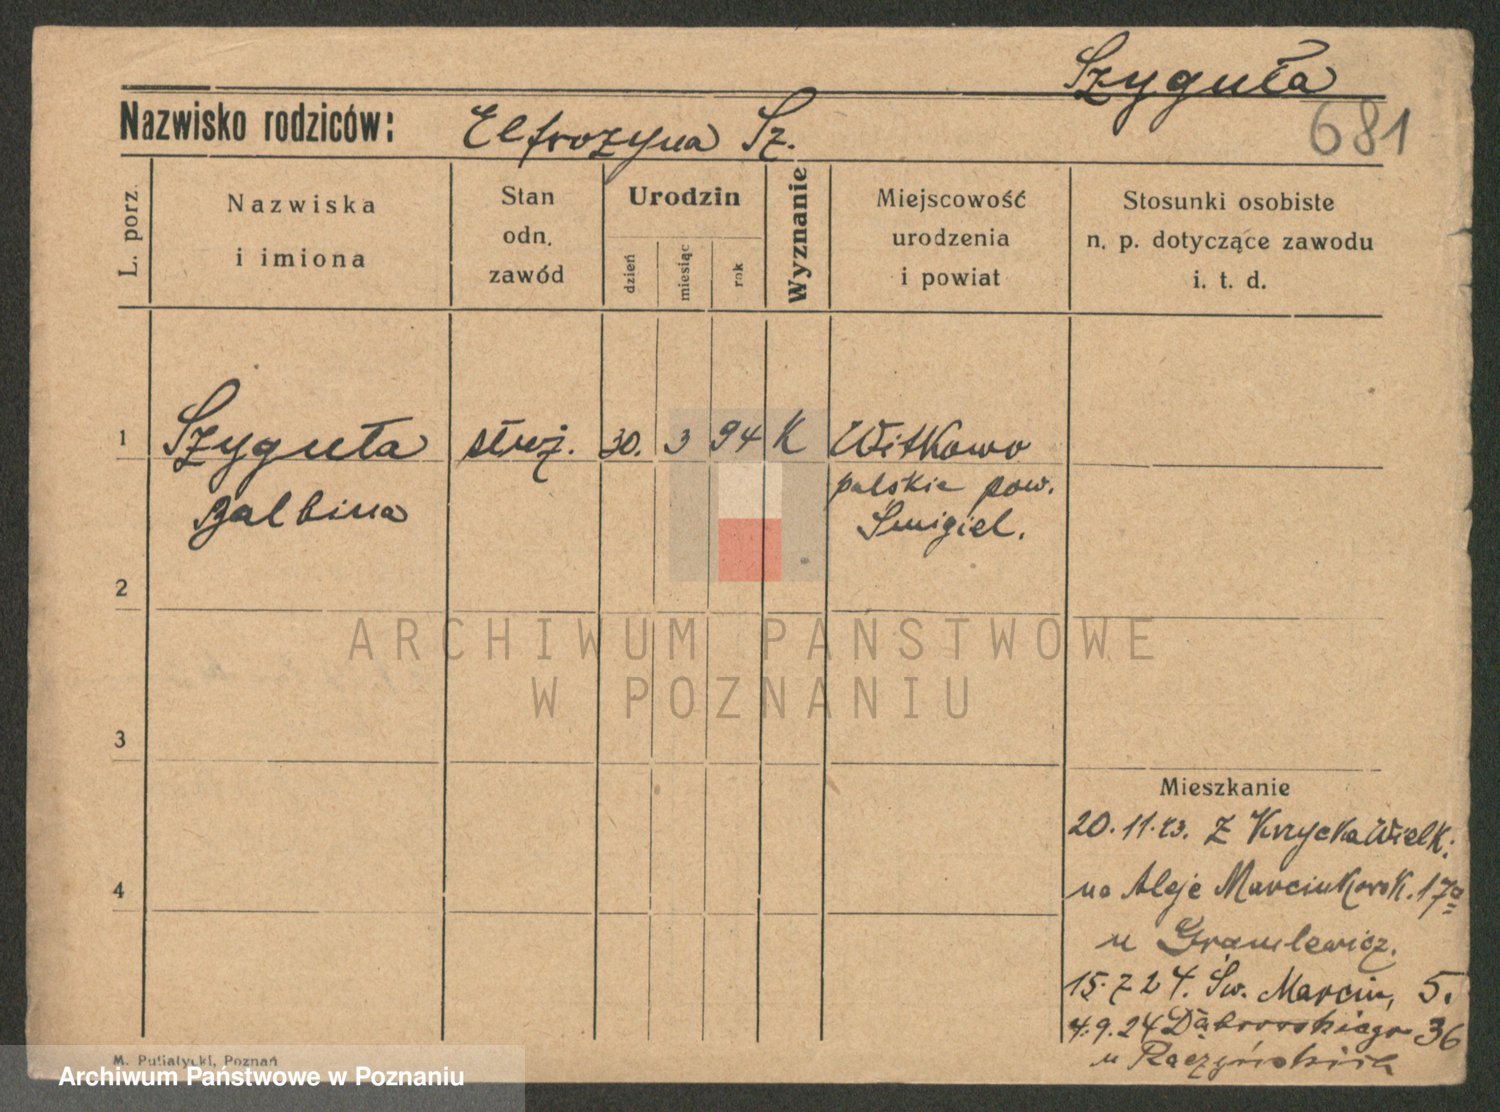 Szyguła
681
Nazwisko rodziców: Elfrozyna Sz.
L. porz.
Nazwiska
i imiona
Stan
odn.
zawód
Urodzin
dzień
miesiąc
rok
Wyznanie
Miejscowość
urodzenia
i powiat
Stosunki osobiste
n. p. dotyczące zawodu
i. t. d.
1 Szyguła 30. 3 94 K Witkowo
Balbina
polskie pow.
Śmigiel.
2
ARCHIWUM PAŃSTWOWE
W POZNANIU
3
Mieszkanie
20.11.23. z Krzycka Wielk.
4
na Aleje Marcinkowsk. 17a
u
15.7 24. Św. Marcin, 5.
4.9.24 Dąbrowskiego 36
u Raczyńskich
M. Putiatycki, Poznań
Archiwum Państwowe w Poznaniu